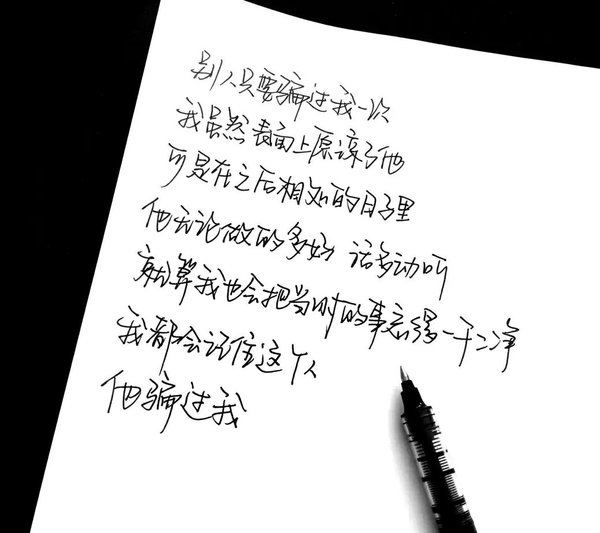 别人只要骗过我一次
我虽然表面上原谅了他
可是在之后相处的日子里
他无论做的多好 话多动听
就算我也会把当时的事忘得一干二净
我都会记住这个人
他骗过我